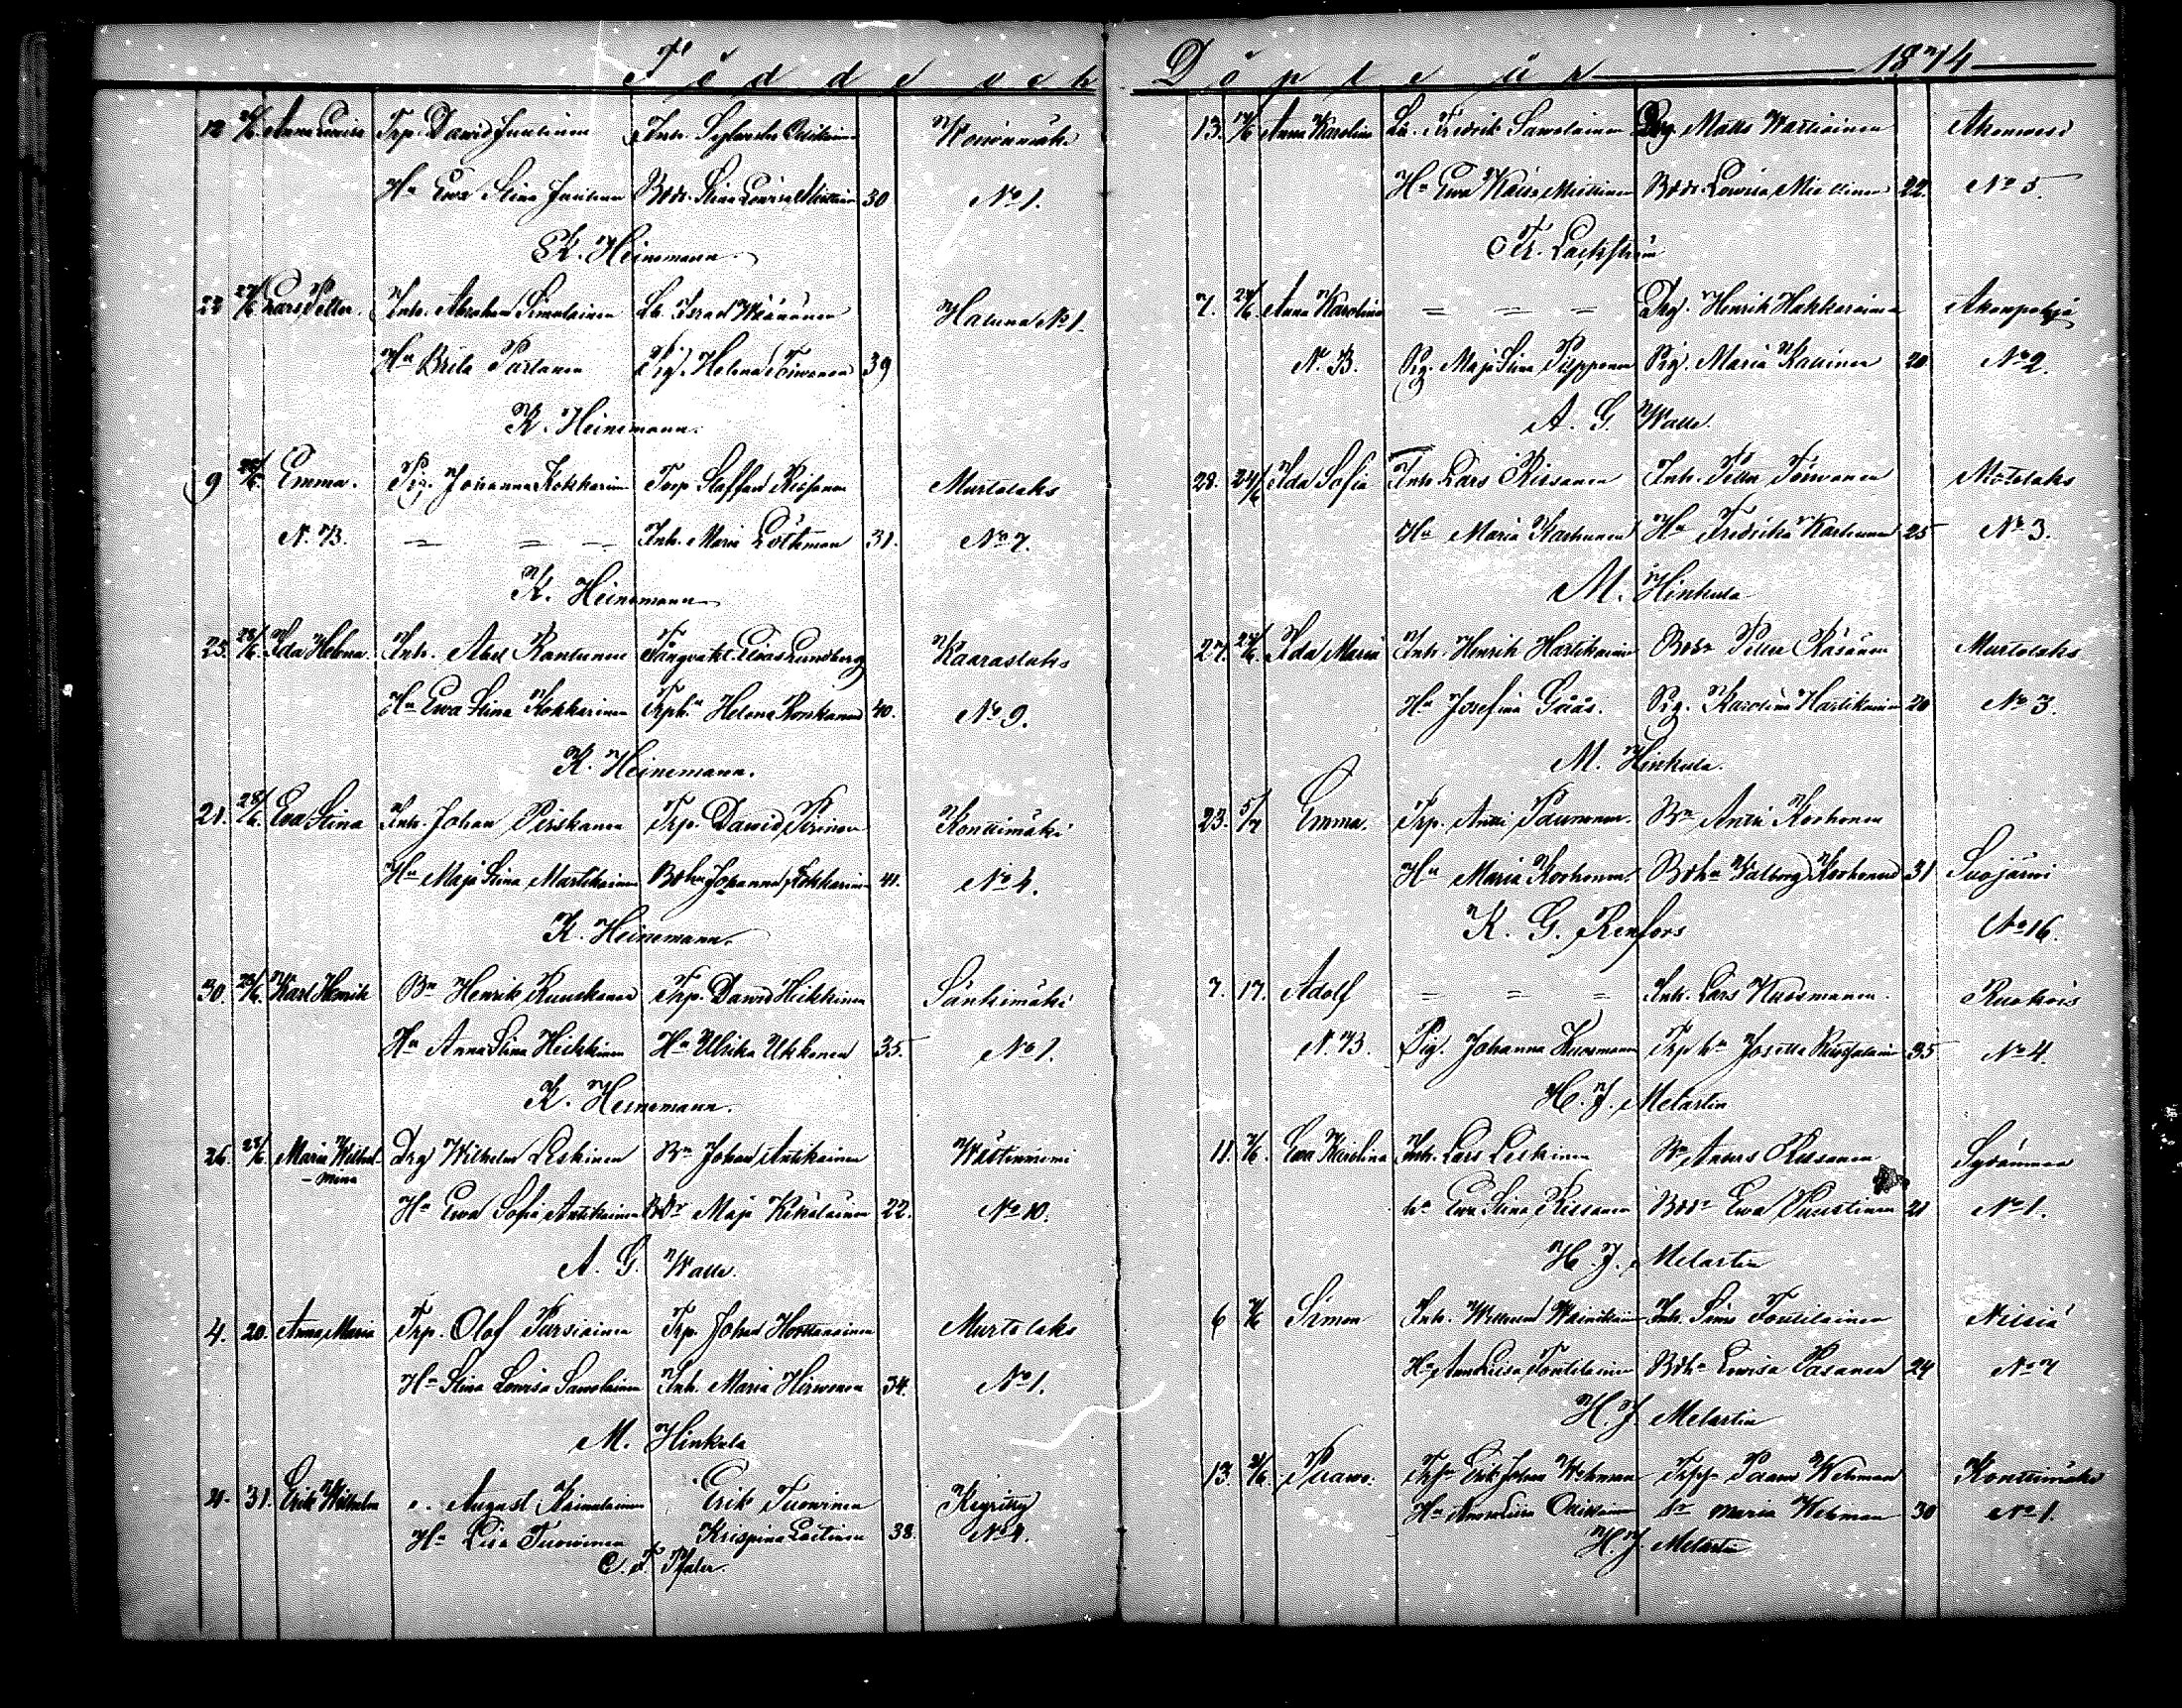 Födde och
12 Anna Lovisa Trp. David Juutinen Inh.
Hu Ewa Stina Juutinen Bdr. Stina Lovisa Miettinen 30 No 1.
K. Heinemann.
22 27/6 Lars Petter. Inh. Abraham Simolainen Lb. Israel Wäänänen Haluna No 1.
Hu Brita Partanen Pig. Helena Toivanen 39
K. Heinemann.
9 28/6. Emma. Pig. Johanna Kokkarinen Torp Staffan Riissanen Murtolaks
N. B. = = = Inh. Maria Löthman 31. No 7.
K. Heinemann
25. 28/6. Ida Helena. Inh. Abel Rantunen Fångvakt. Elias Lundberg Kaaraslaks
Hu Ewa Stina Kokkarinen Trph. Helena Koskanen 40. No 9.
K. Heinemann.
21. 28/6. Eva Stina Inh. Johan Pirskanen Trp. David Piirinen Konttimäki
Hu Maja Stina Martikainen Bdhu Johanna Kokkarinen 41. No 4.
K. Heinemann.
30. 28/6. Karl Henrik Bn Henrik Ruuskanen Trp. David Heikkinen Sänkimäki
Hu Anna Stina Heikkinen Hu Ulrika Ukkonen 35. No 1.
K. Heinemann.
26. 28/6. Maria Wilhel- Drg Wilhelm Leskinen Bn Johan Antikainen Wästinniemi
-mina
Hu Ewa Sofia Antikainen Bdr Maja Kekäläinen 22. No 10.
A. G. Walle.
4. 20. Anna Maria Trp. Olof Pursiainen Trp. Johan Murtolaks
Hu Stina Lovisa Sawolainen Inh. Maria Hirvonen 34. No 1.
M. Hinkula
4. 31. Erik Wilhelm August Erik Tuovinen
Hu Lisa Tuovinen Krispina Laitinen 38. No 4.
C. F. Pfaler.
Döpte år 1874
13. Anna Karolina Lb. Fredrik Sawolainen Drg. Matts Wartiainen Akonwesi
Hu Ewa Kaisa Miettinen Bdr. Lovisa Miettinen 22. No 5.
Fr. Lackström
7. 24/6. Anna Karolina = = = Drg. Henrik Hakkarainen Akonpohja
N. B. Pig. Maja Stina Pipponen Pig. Maria Kallinen 20 No 2.
A. G. Walle.
28. 24/6 Ida Sofia Inh Lars Riissanen Inh. Petter Toivanen Murtolaks
Hu Maria Karhunen Hu Fredrika Karhunen 25 No 3.
M. Hinkula
27. 24/6. Ida Maria Inh. Henrik Hartikainen Bdr Petter Räsänen Murtolaks
Hu Josefina Gåås. Pig. Karolina Hartikainen 20 No 3.
M. Hinkula.
23. 5/7 Emma. Trp. Antti Paunonen. Bn Antti Korhonen
Hu Maria Korhonen. Bdhu Walborg Korhonen 31 Suojärwi
K. G. Renfors No 16.
7. 17. Adolf = = = Inh. Lars Kuosmanen.
N. B. Pig. Johanna Kuosmanen Trp hu 35 No 4.
H. J. Melartin
11. Ewa Karolina Inh. Lars Leskinen Bn Anders Riissanen Sydänmaa
hu Ewa Stina Riissanen Bdr Ewa Puustinen 21 No 1.
H. J. Melartin
6 Simon Inh. Wainikainen Inh. Simo Toutilainen Nilsiä
Hu Anna Luisa Toutilainen Bdhu Lovisa Pasanen 24 No 7
H. J. Melartin
13. Paavo. Trp Erik Johan Wehman Trp Paavo Wehman Konttimäki
Hu Anna Luisa hu Maria Wehman 30 No 1.
H. J. Melartin